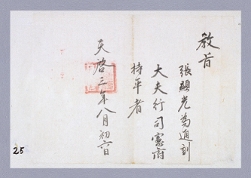 教旨
張顯光爲通訓
大夫行司憲府
持平者
天啓三年八月初六日
25